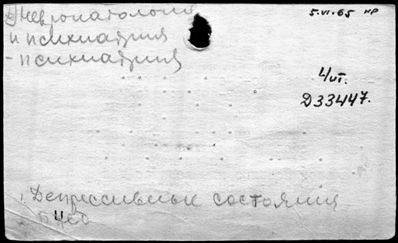 Невропатология
и психиатрия
- психиатрия
5.VI.65 НР
4/VI.
Д33447.
1. Депрессивные состояния